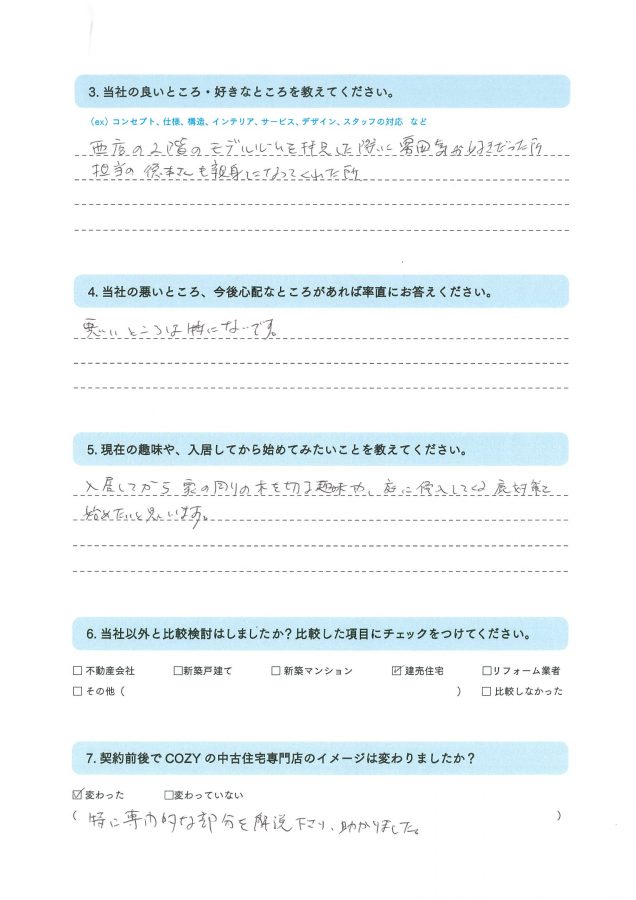 3. 当社の良いところ・好きなところを教えてください。
（ex）コンセプト、仕様、構造、インテリア、サービス、デザイン、スタッフの対応 など
西店の2階のモデルルームを拝見した際に雰囲気が好きだった所
担当の徳本さんも親身になってくれた所
4. 当社の悪いところ、今後心配なところがあれば率直にお答えください。
悪いところは特にないです。
5. 現在の趣味や、入居してから始めてみたいことを教えてください。
入居してから家の周りの木を切る趣味や、庭に侵入してくる鹿対策を
始めたいと思います。
6. 当社以外と比較検討はしましたか？比較した項目にチェックをつけてください。
□ 不動産会社 □新築戸建て □ 新築マンション ☑ 建売住宅 □リフォーム業者
□ その他（ ） □ 比較しなかった
7. 契約前後でCOZYの中古住宅専門店のイメージは変わりましたか？
☑変わった □変わっていない
（ 特に専門的な部分を解説下さり、助かりました。 ）